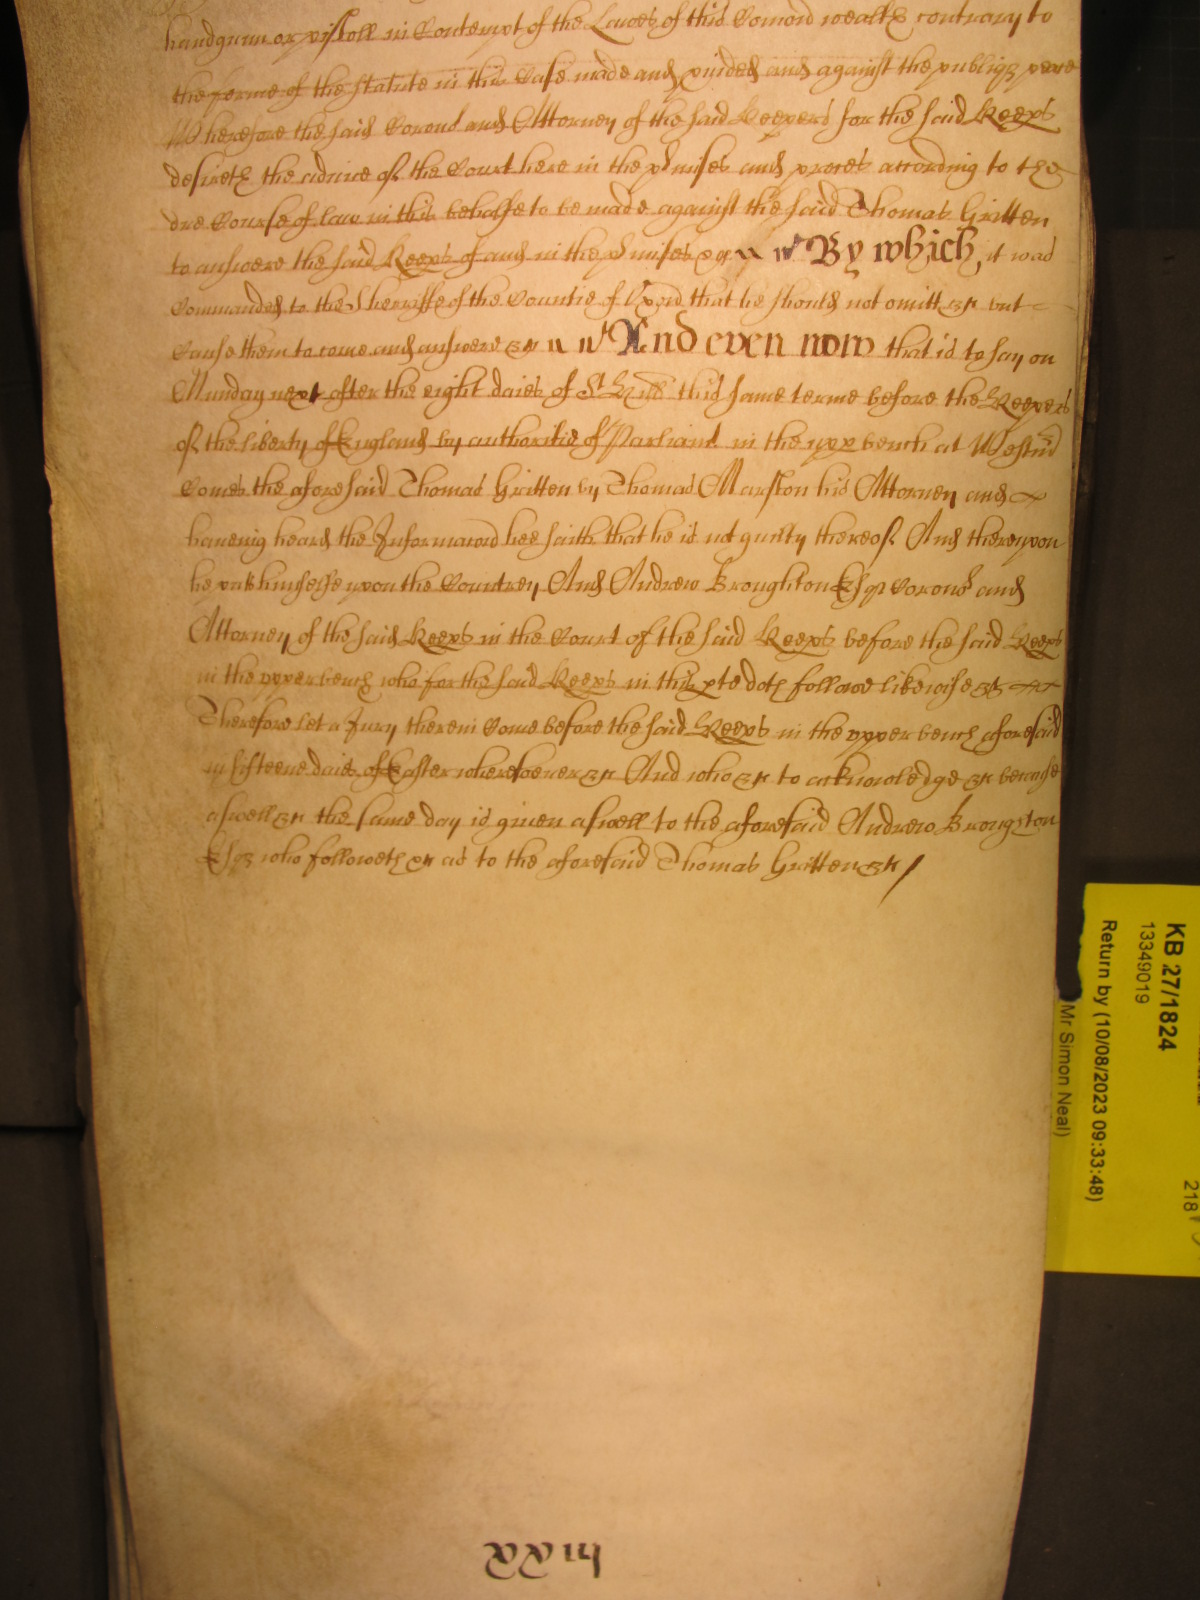 handgunn or pistoll in Contempt of the Lawes of this Comon wealth contrary to
the forme of the statute in this Case made and pvided and against the publiq peace
Wherefore the said Coroner and Attorney of the said Keepers for the said Keeps
desireth the advice of the Court here in the pmises and proces according to the
due Course of law in this behalfe to be made against the said Thomas Gritten
to answere the said Keeps of and in the pmises &c By which it was
Commanded to the Sherriffe of the Countie of that he should not omitt &c but
Cause them to come and answere &c And even now that is to say on
Munday next after the eight daies of St Hill this same terme before the Keepers
of the liberty of England by authoritie of Parliamt in the upp bench at Westm
Comes the aforesaid Thomas Gritten by Thomas Marston his Attorney and
haveing heard the Informacon hee saith that he is not guilty thereof And thereupon
he putts himselfe upon the Countrey And Andrew Broughton Esq Coroner and
Attorney of the said Keeps in the Court of the said Keeps before the said Keeps
in the upper bench who for the said Keeps in this pte doth followe likewise &c
Therefore let a Jury therein Come before the said Keeps in the upper bench aforesaid
in fifteene daies of after wheresoever &c And who &c to acknowledge &c because
aswell &c the same day is given aswell to the aforesaid Andrew Broughton
Esq who followeth &c as to the aforesaid Thomas Gritten &c /
KB 27/1824
13349019
Return by (10/08/2023 09:33:48)
Mr Simon Neal)
218